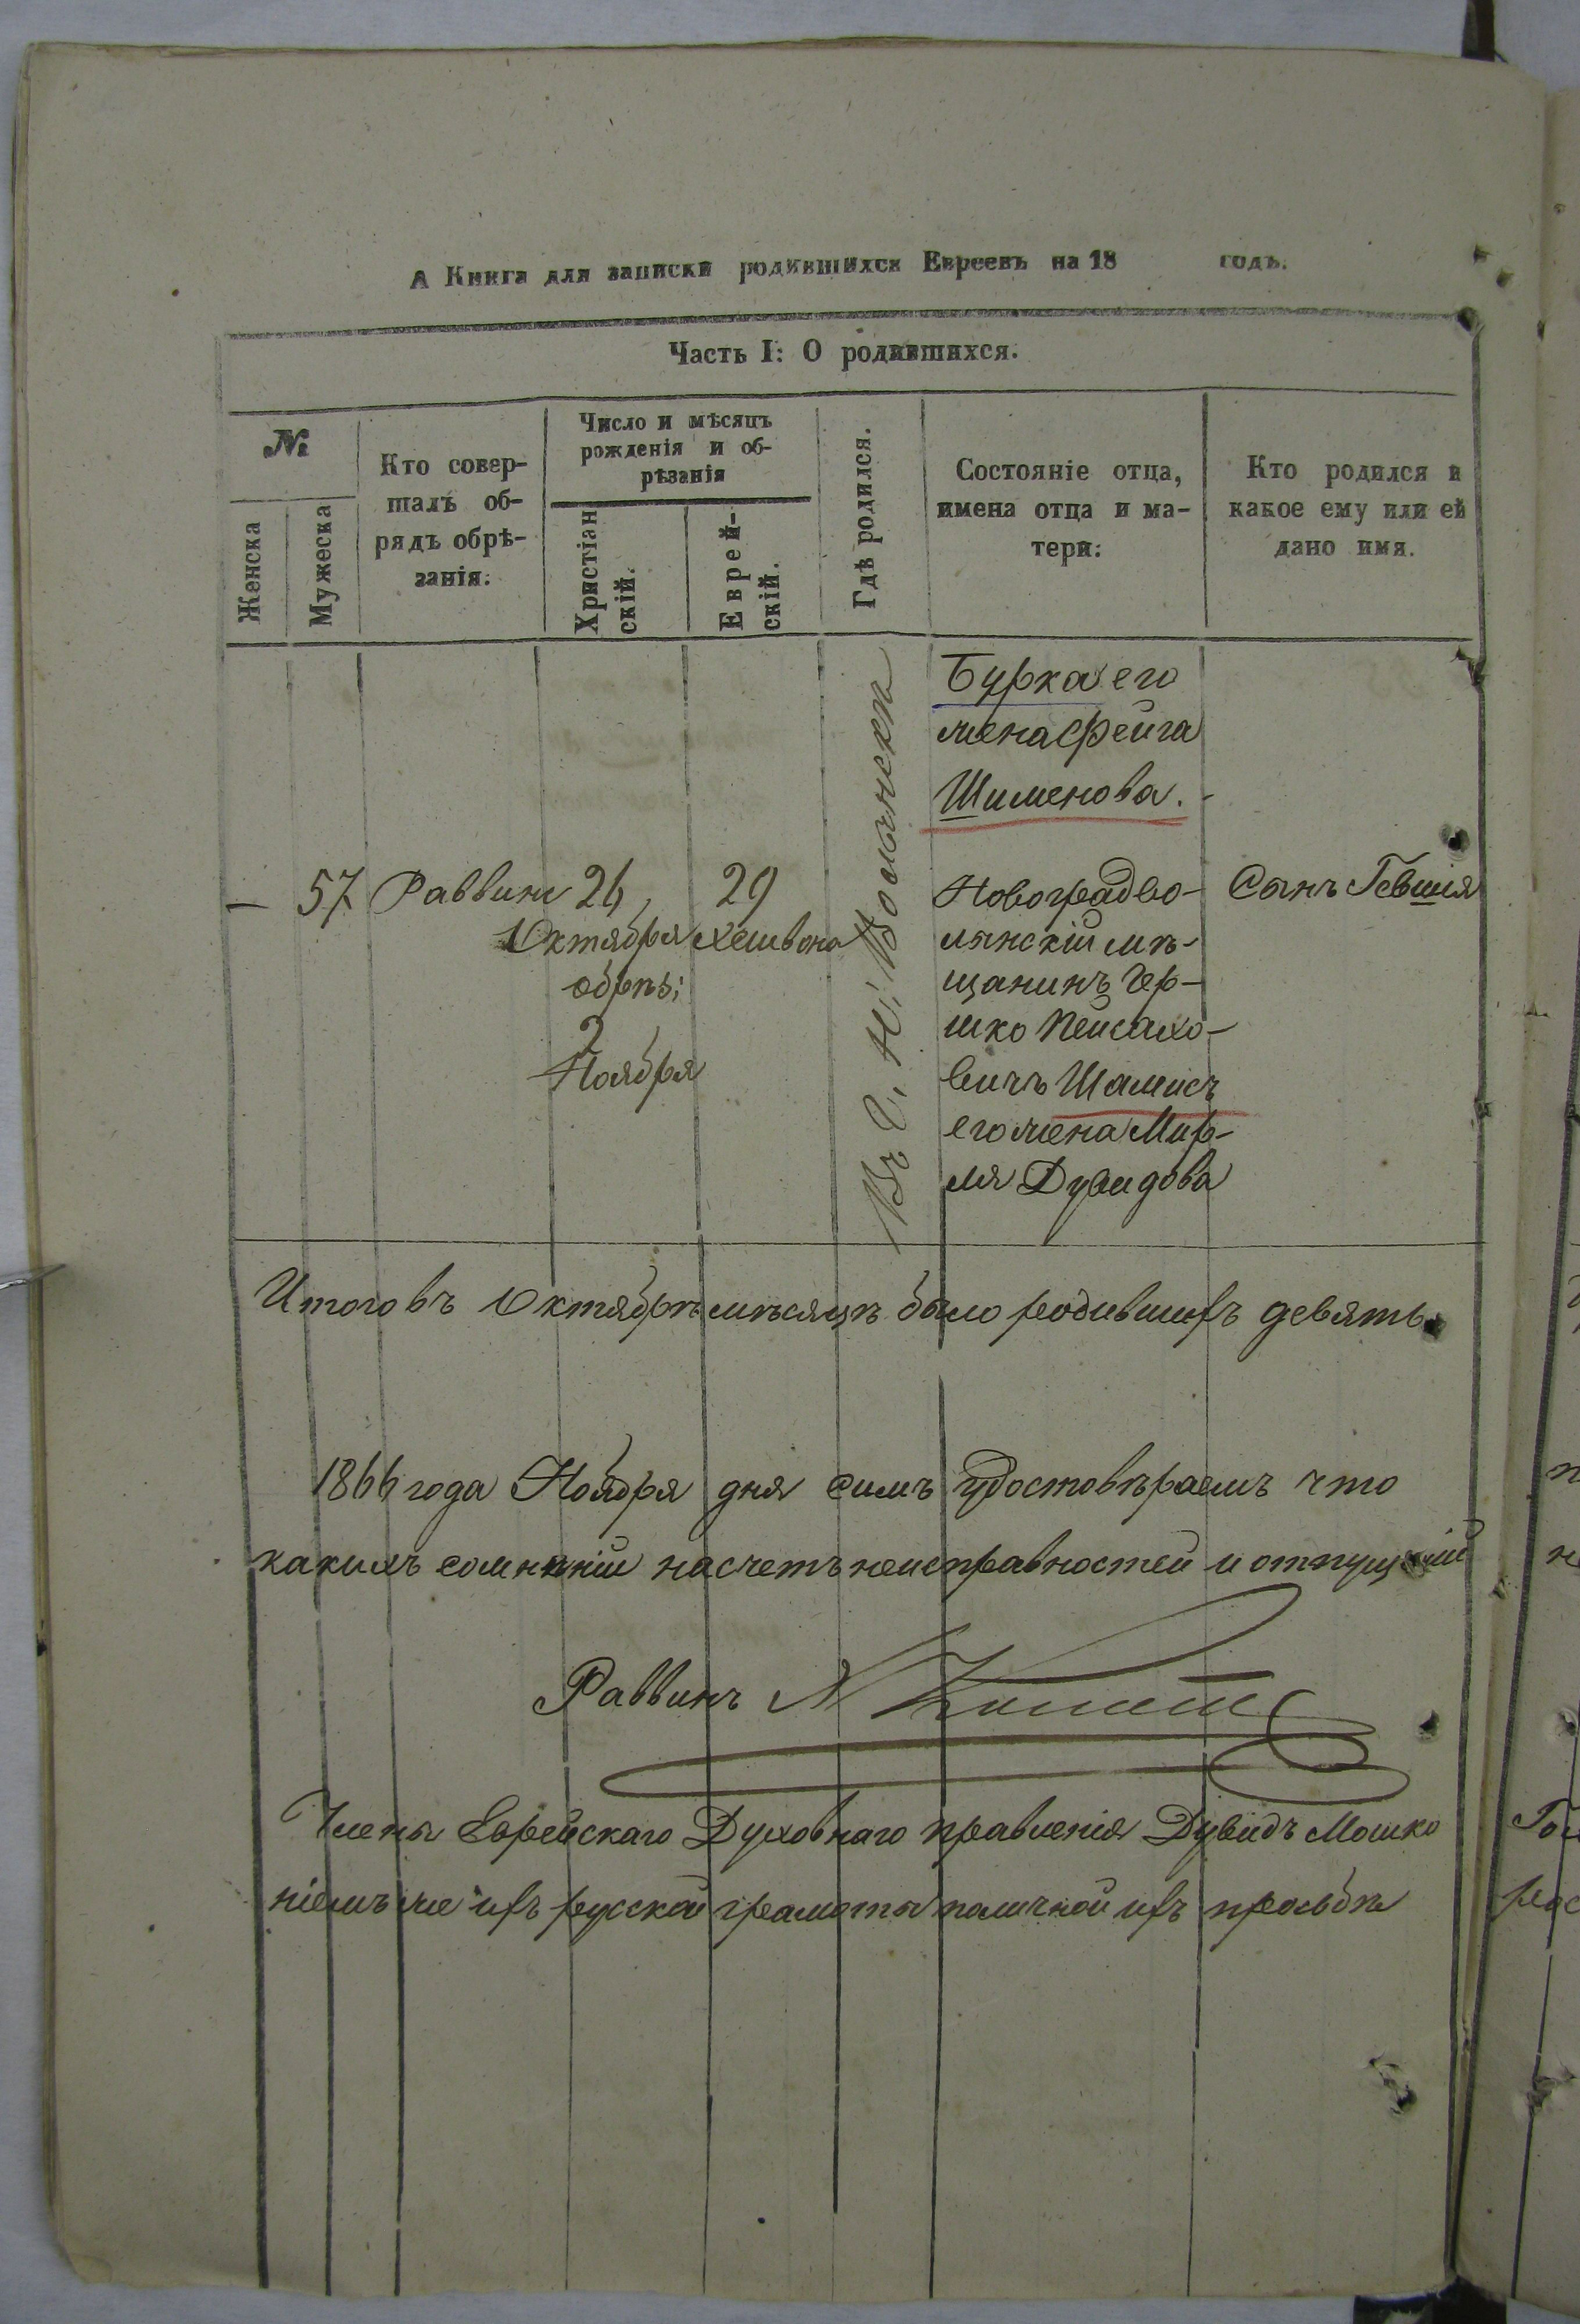 А Книга для записки родившихся Евреевъ на 18 годъ.
Часть I: О родившихся.
№
Женска
Мужеска
Кто совер-
шалъ об-
рядъ обрѣ-
занія.
Число и мѣсяцъ
рожденія и об-
рѣзанія
Христіан
скій.
Еврей-
скій.
Гдѣ родился.
Состояніе отца,
имена отца и ма-
тери:
Кто родился и
какое ему или ей
дано имя.
Бурка его
жена Фейга
Шименова.
— 57 Раввинъ 26 29
Октября Хешвона
обрѣз:
2
Ноября
Новоградво-
лынскій мѣ-
щанинъ Гер-
шко Пейсахо-
вичъ Шамисъ
его жена Мир-
ля Дувидова
Сынъ Гевшия
Итого въ Октябрѣ мѣсяцѣ было родившихъ девять
1866 года Ноября дня симъ удостовѣраемъ что
какихъ сомнѣній насчетъ неисправностей и
Раввинъ
Члены Еврейскаго Духовнаго правленія Дувидъ Мошко
ніемъ же ихъ русской грамоты поличной ихъ просьбѣ